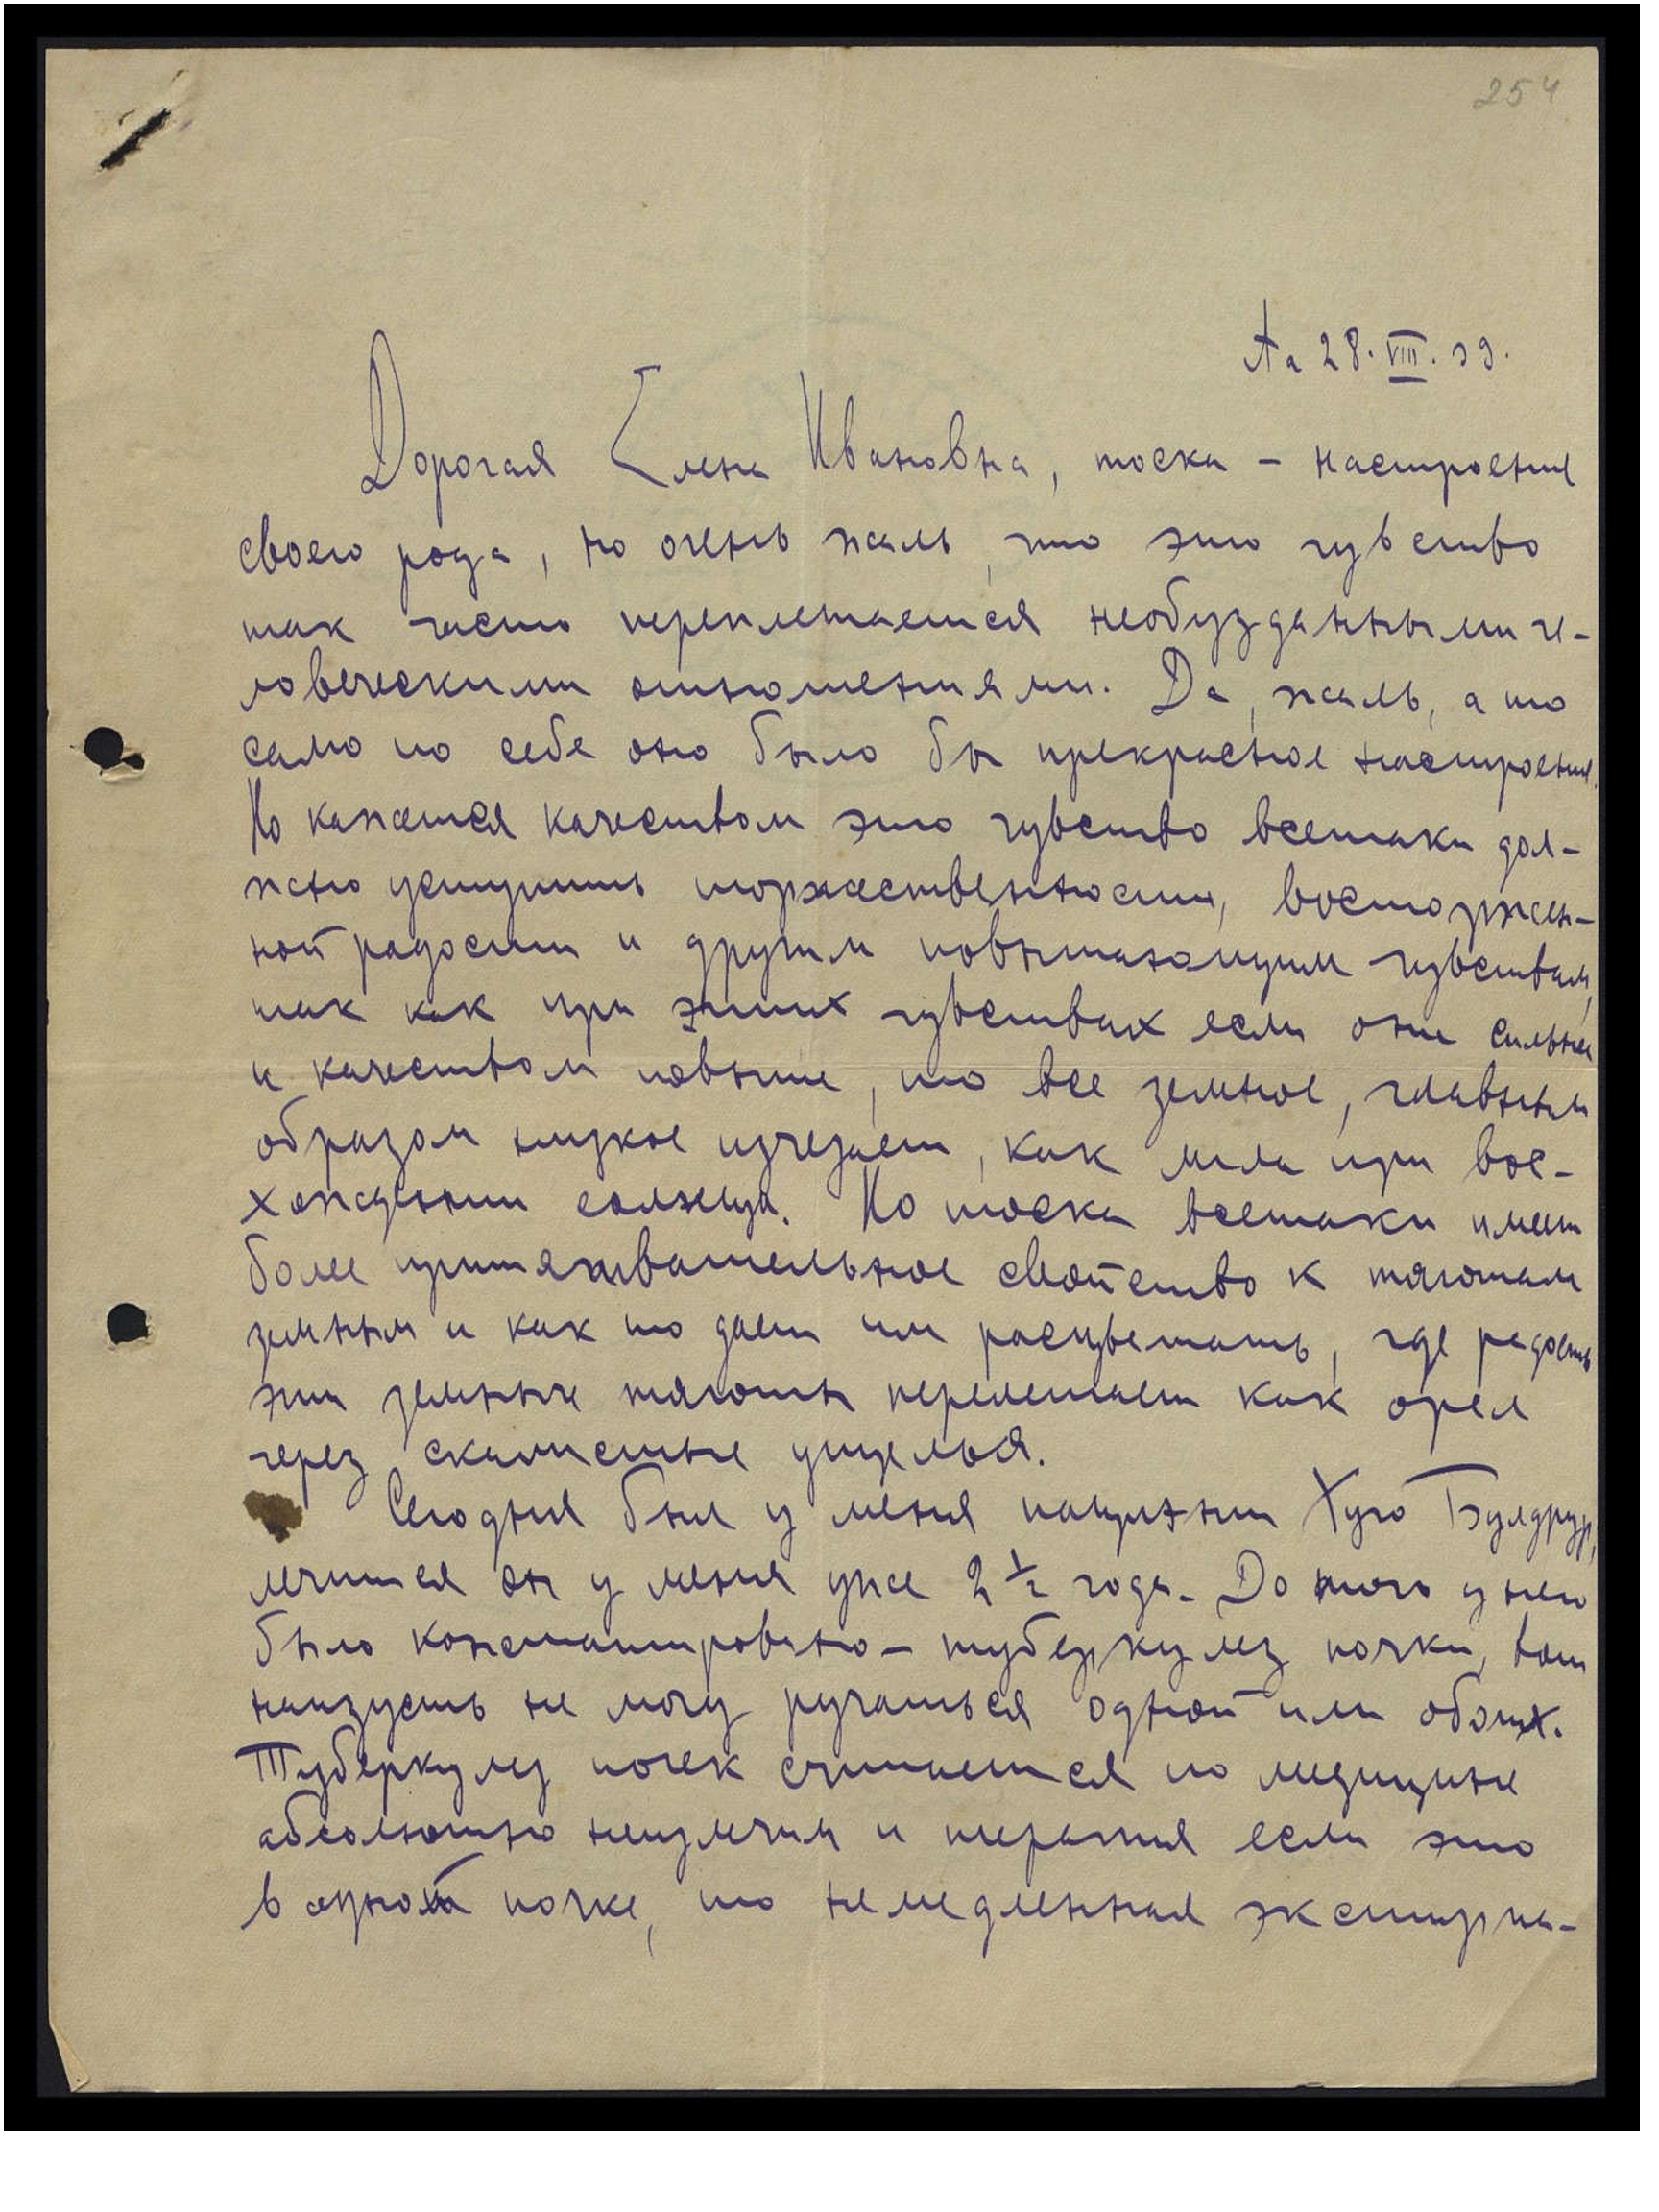 254
Aa 28.VIII.39.
Дорогая Елена Ивановна, тоска – настроение
своего рода, но очень жаль, что это чувство
так часто переплетается необузданными че-
ловеческими отношениями. Да, жаль, а то
само по себе оно было бы прекрасное настроение.
Но кажется качеством это чувство всетаки дол-
жно уступить торжественности, восторжен-
ной радости и другим повышающим чувствам,
так как при этих чувствах если они сильные
и качеством повыше, то все земное, главным
образом низкое изчезает, как мгла при вос-
хождении солнца. Но тоска всетаки имеет
более притягивательное свойство к тяготам
земным и как то дает им расцветать, где радость
эти земные тяготы перелетает как орел
через скалистые ущелья.
Сегодня был у меня пациент Хуго Булдрур,
лечится он у меня уже 2 ½ года. До того у него
было констатировано – туберкулез почки, вот
наизусть не могу ручаться одной или обоих.
Туберкулез почек считается по медицине
абсолютно неизлечим и терапия если это
в одной почке, то немедленная экстирпа-